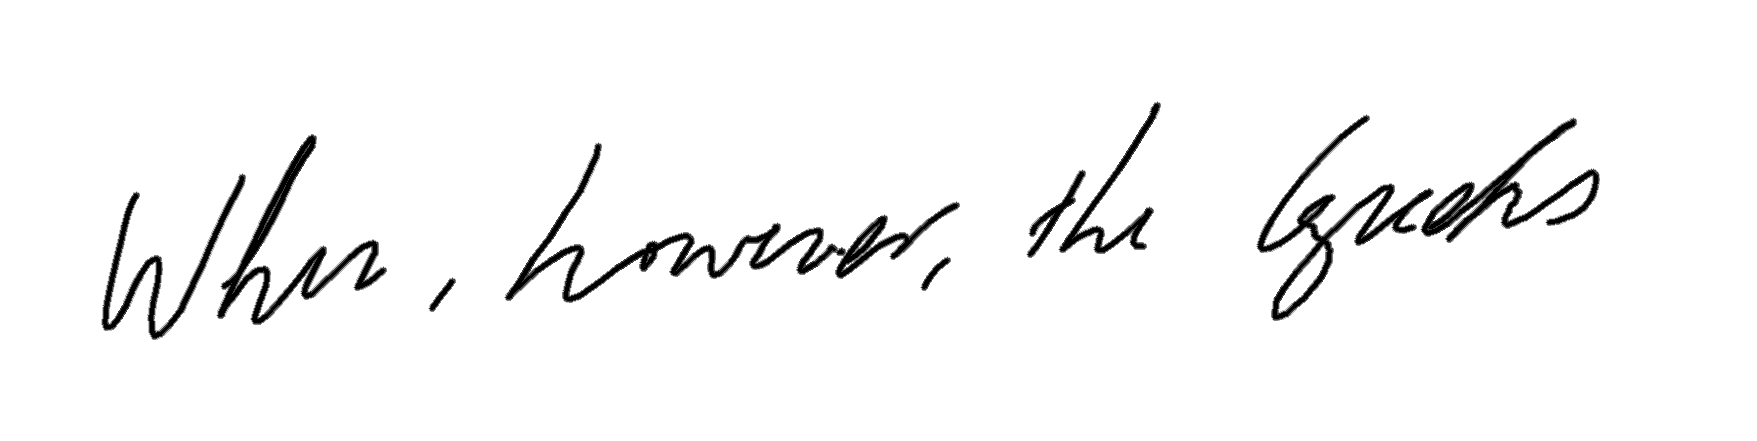 When, however, the Greeks